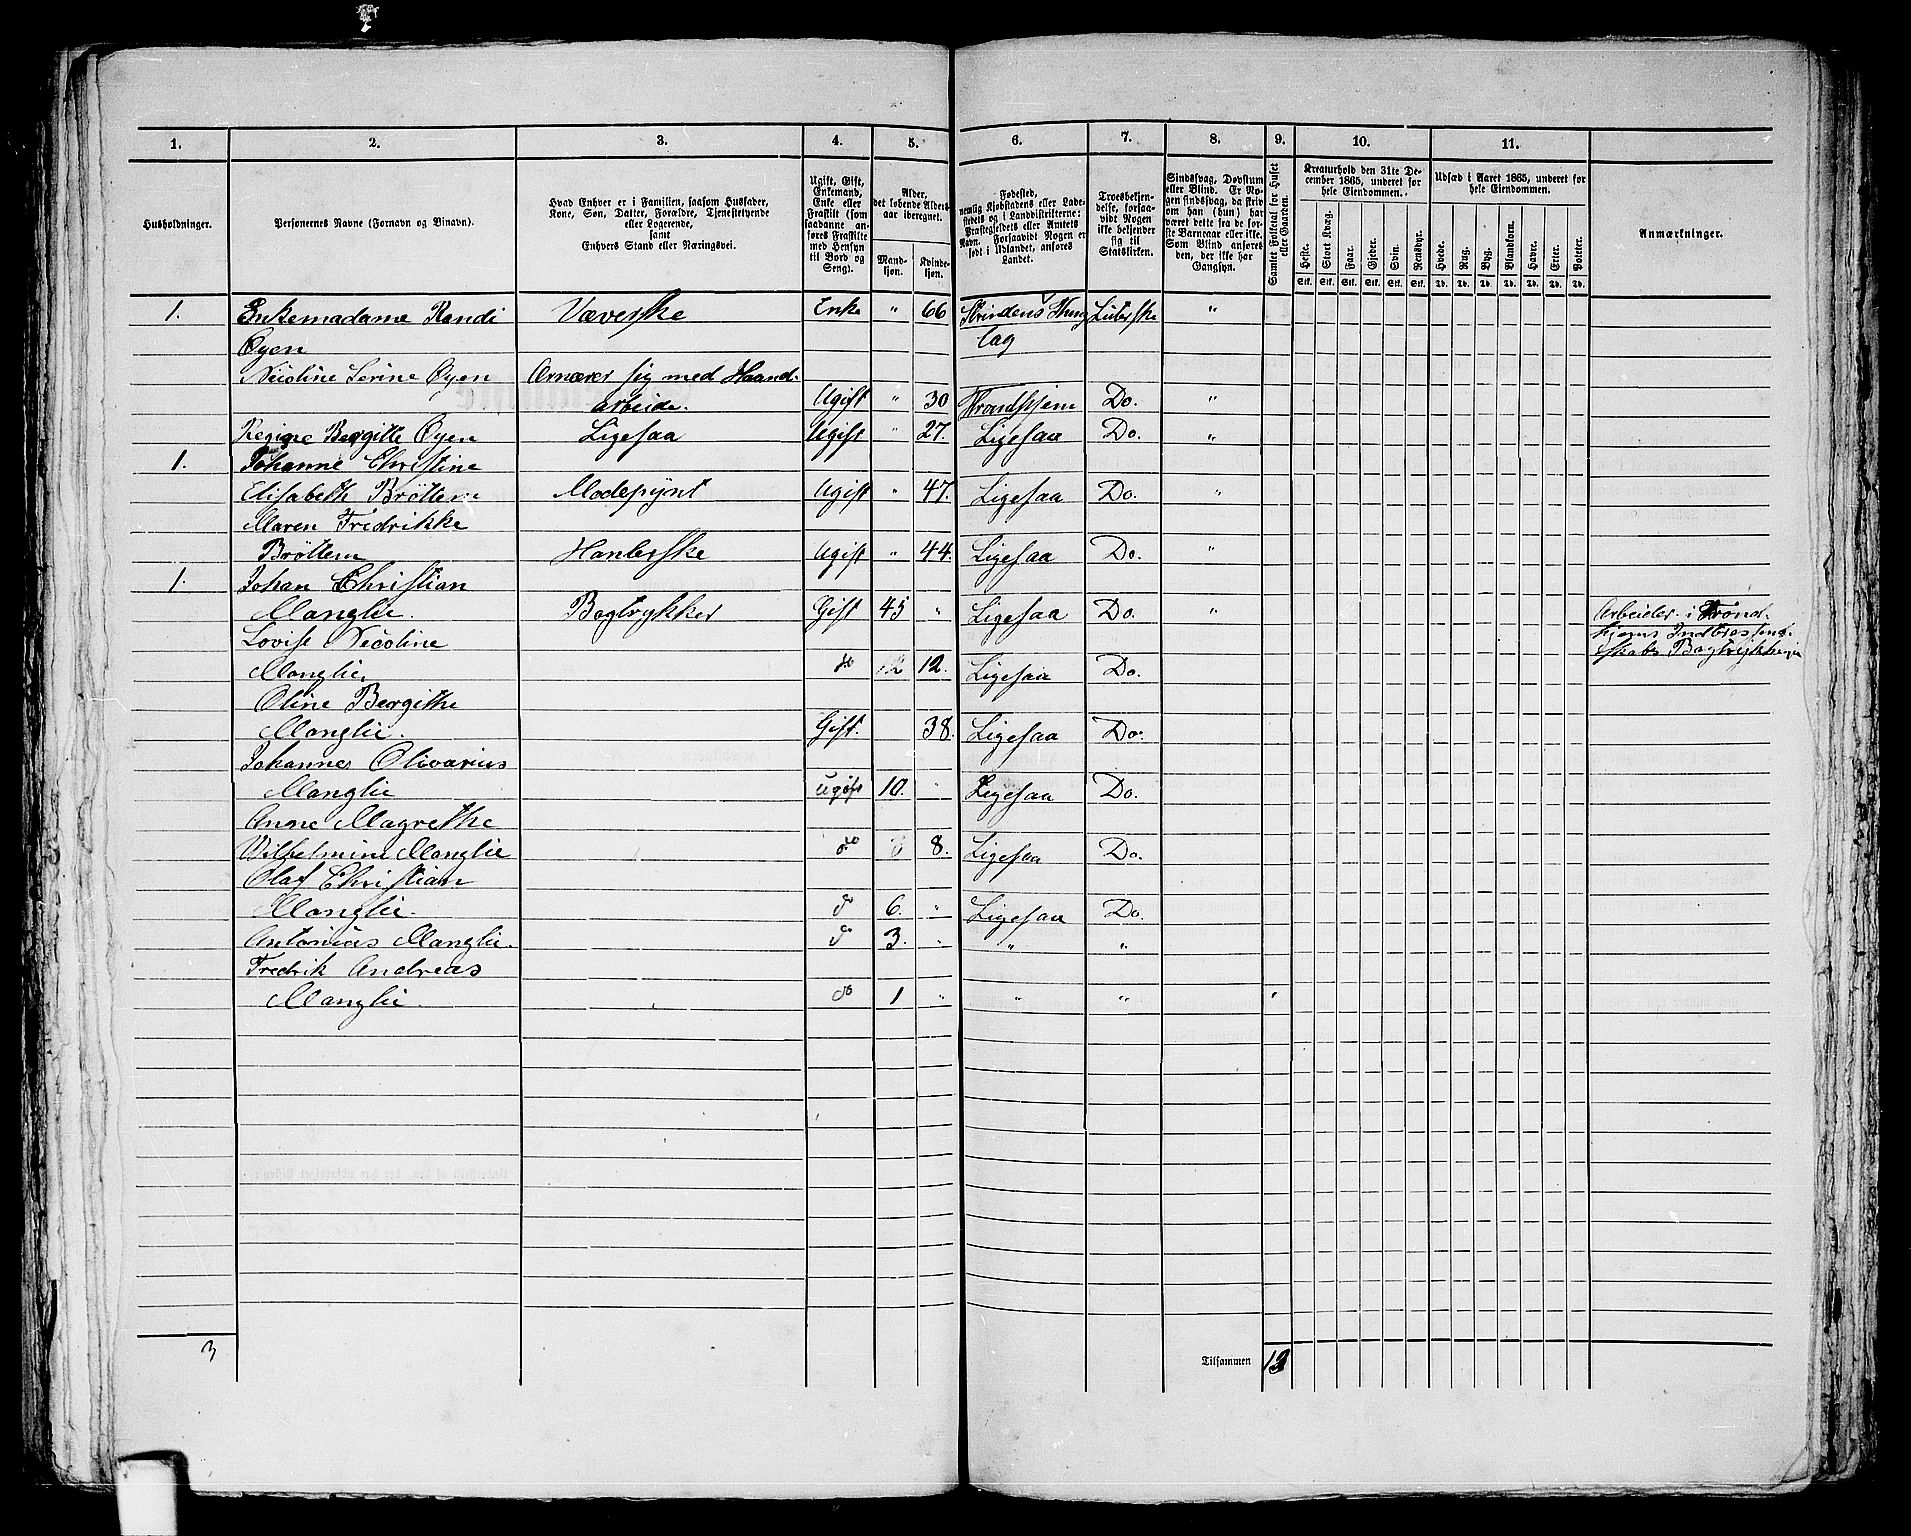 1. 2. 3. 4. 5. 6. 7. 8. 9. 10. 11.
Husholdninger.
Personernes Navne (Fornavn og Tilnavn).
Hvad Enhver er i Familien, saasom Husfader,
Kone, Søn, Datter, Forældre, Tjenestetyende
eller Logerende,
samt
Enhvers Stand eller Næringsvei.
Ugift, Gift,
Enkemand,
Enke eller
Fraskilt (som
saadanne an-
føres Fraskilte
med Hensyn
til Bord og
Seng).
Alder,
det løbende Alders-
aar iberegnet.
Mand-
kjøn.
Kvinde-
kjøn.
Fødested,
nemlig Kjøbstadens eller Lade-
stedets og i Landdistrikterne:
Præstegjeldets eller Amtets
Navn. Forsaavidt Nogen er
født i Udlandet, anføres
Landet.
Troesbekjen-
delse, forsaa-
vidt Nogen
ikke bekjender
sig til
Statskirken.
Sindssvag, Døvstum
eller Blind. Er No-
gen sindssvag, da skriv
om han (hun) har
været dette fra de før-
ste Barneaar eller ikke.
Som Blind anføres
den, der ikke har
Gangsyn.
Samlet Folketal for Huset
eller Gaarden.
Kreaturhold den 31te De-
cember 1865, underet for
hele Eiendommen.
Heste. Stort Kvæg. Faar. Gjeder. Svin. Rensdyr.
Stk. Stk. Stk. Stk. Stk. Stk.
Udsæd i Aaret 1865, underet for
hele Eiendommen.
Hvede. Rug. Byg. Blandkorn. Havre. Erter. Poteter.
Td. Td. Td. Td. Td. Td. Td.
Anmærkninger.
1. Enkemadame Randi Væverske Enke " 66 Strindens Thing Lutherske "
Øyen lag
Nicoline Serine Øyen Ernærer sig med Haand-
arbeide. Ugift " 30 Trondhjem Do. "
Regine Bergitte Øyen Ligesaa Ugift " 27. Ligesaa Do. "
1. Johanne Christine
Elisabeth Brøttem Modepynt Ugift " 47. Ligesaa Do. "
Maren Fredrikke
Brøttem Ugift " 44. Ligesaa Do. "
1. Johan Christian
Manglie. Bogtrykker Gift 45 " Ligesaa Do. " Arbeider i Trond-
Lovise Nicoline
Manglie do 12 12. Ligesaa Do.
Oline Bergithe
Manglie. Gift. 38. Ligesaa Do.
Johannes Olivarius
Manglie ugift 10. " Ligesaa Do.
Anne Magrethe
Vilhelmine Manglie do 8. Ligesaa Do.
Olaf Christian
Manglie. do 6. " Ligesaa Do.
Antonius Manglie. do 3. " " "
Fredrik Andreas
Manglie. do 1 " " " "
3 Tilsammen